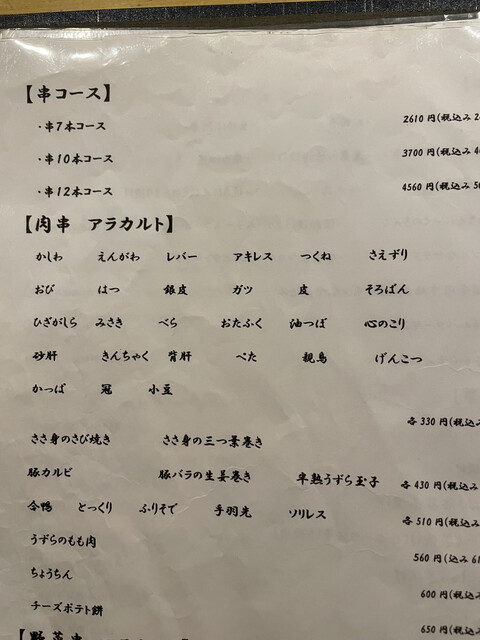 【串コース】
・串7本コース 2610円(税込み 2
・串10本コース 3700円(税込み 4
・串12本コース 4560円(税込み 50
【肉串 アラカルト】
かしわ えんがわ レバー アキレス つくね さえずり
おび はつ 銀皮 ガツ 皮 そろばん
ひざがしら みさき べら おたふく 油つぼ 心のこり
砂肝 きんちゃく 背肝 ぺた 親鳥 げんこつ
かっぱ 冠 小豆
各330円(税込み
ささ身のさび焼き ささ身の三つ葉巻き
豚カルビ 豚バラの生姜巻き 半熟うずら玉子 各430円(税込み
合鴨 とっくり ふりそで 手羽先 ソリレス 各510円(税込み
うずらのもも肉 560円(込み 61
ちょうちん 600円(税込み
チーズポテト餅 650円(税込み